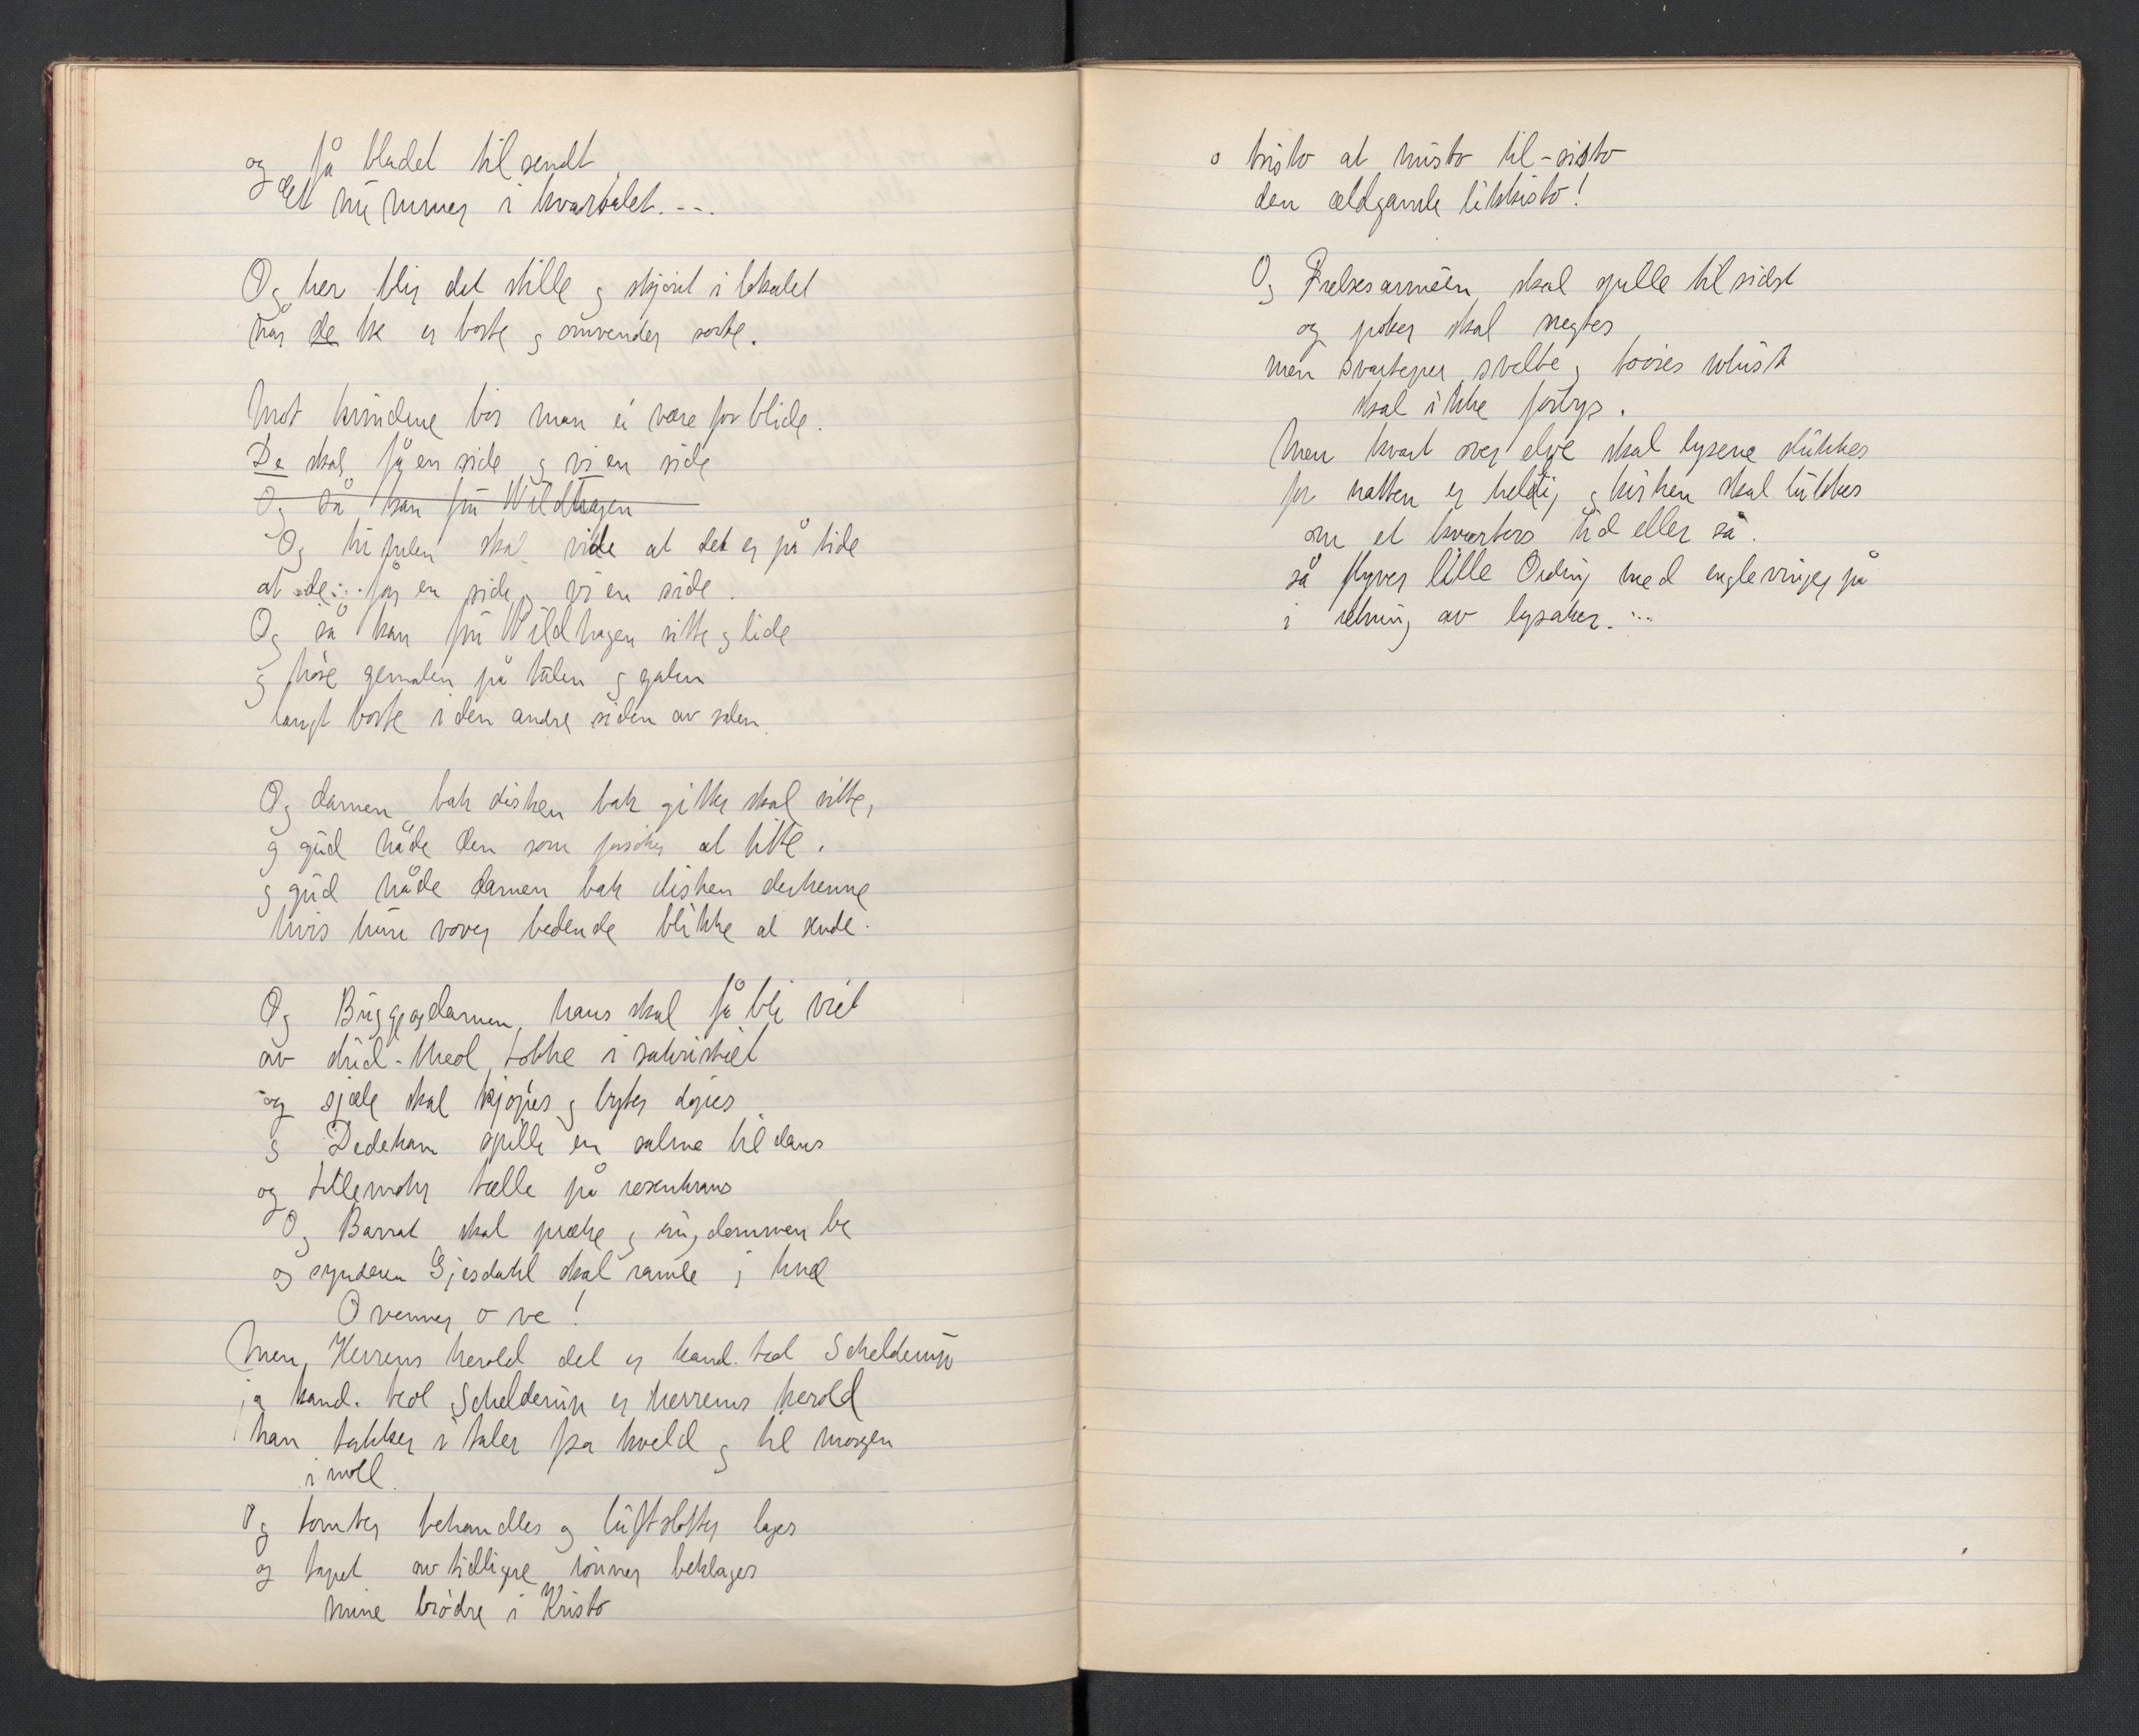 og få bladet tilsendt
Et nummer i kvartalet. - -.
Og her blir det stille og skjønt i lokalet
når de tre er borte og omvender sorte.
Mot kvindene bør man ei være for blide.
De skal få en side og vi en side
Og så kan fru Wildhagen
Og tufulen skal vide at det er på tide
at de får en side og vi en side.
Og så kan fru Wildhagen sitte og lide
og høre gemalen på talen og galen
langt borte i den andre siden av salen.
Og damen bak disken bak gitter skal sitte,
og gud nåde den som forsøker at titte.
og gud nåde damen bak disken derhenne
hvis hun vover bedende blikke at sende.
Og Buggedamen hans skal få bli viet
av stud-theol Lokke i sakristiet
og sjæle skal kjøpes og lyter døpes
og Dedekam spille en salme til dans
og Lillemohr tælle på rosenkrans
Og Barrat skal præke og ungdommen be
og synderen Gjesdahl skal ramle i knæ
O venner o ve!
Men, Herrens herold det er kand. teol Schelderup
ja kand. teol Schelderup er herrens herold
han takker i taler fra kveld og til morgen
i moll.
Og tomter behandles og luftslotter lages
og tapet av tidligere rønner beklages
mine brødre i Kristo
o tristo at misto til-sisto
den ældgamle likkisto!
Og Frelsesarmeen skal spille tilsidst
og poker skal negtes
men svarteper svelte og toøres whist
skal ikke forbys.
Men kvart over elve skal lysene slukkes
for natten er hellig og kirken skal lukkes
om et kvarters tid eller så.
så flyver lille Ording med englevinger på
i retning av lysaker. ...